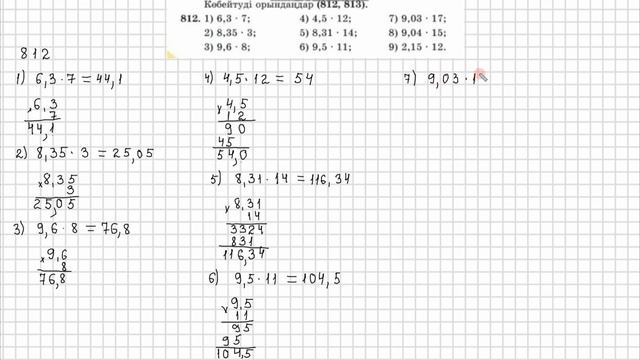 Көбейтуді орындаңдар (812, 813).
812. 1) 6,3 · 7; 4) 4,5 · 12; 7) 9,03 · 17;
2) 8,35 · 3; 5) 8,31 · 14; 8) 9,04 · 15;
3) 9,6 · 8; 6) 9,5 · 11; 9) 2,15 · 12.
812
1) 6,3 · 7 = 44,1
× 6,3
7
44,1
2) 8,35 · 3 = 25,05
× 8,35
3
25,05
3) 9,6 · 8 = 76,8
× 9,6
8
76,8
4) 4,5 · 12 = 54
× 4,5
12
90
45
54,0
5) 8,31 · 14 = 116,34
× 8,31
14
3324
831
116,34
6) 9,5 · 11 = 104,5
× 9,5
11
95
95
104,5
7) 9,03 · 1